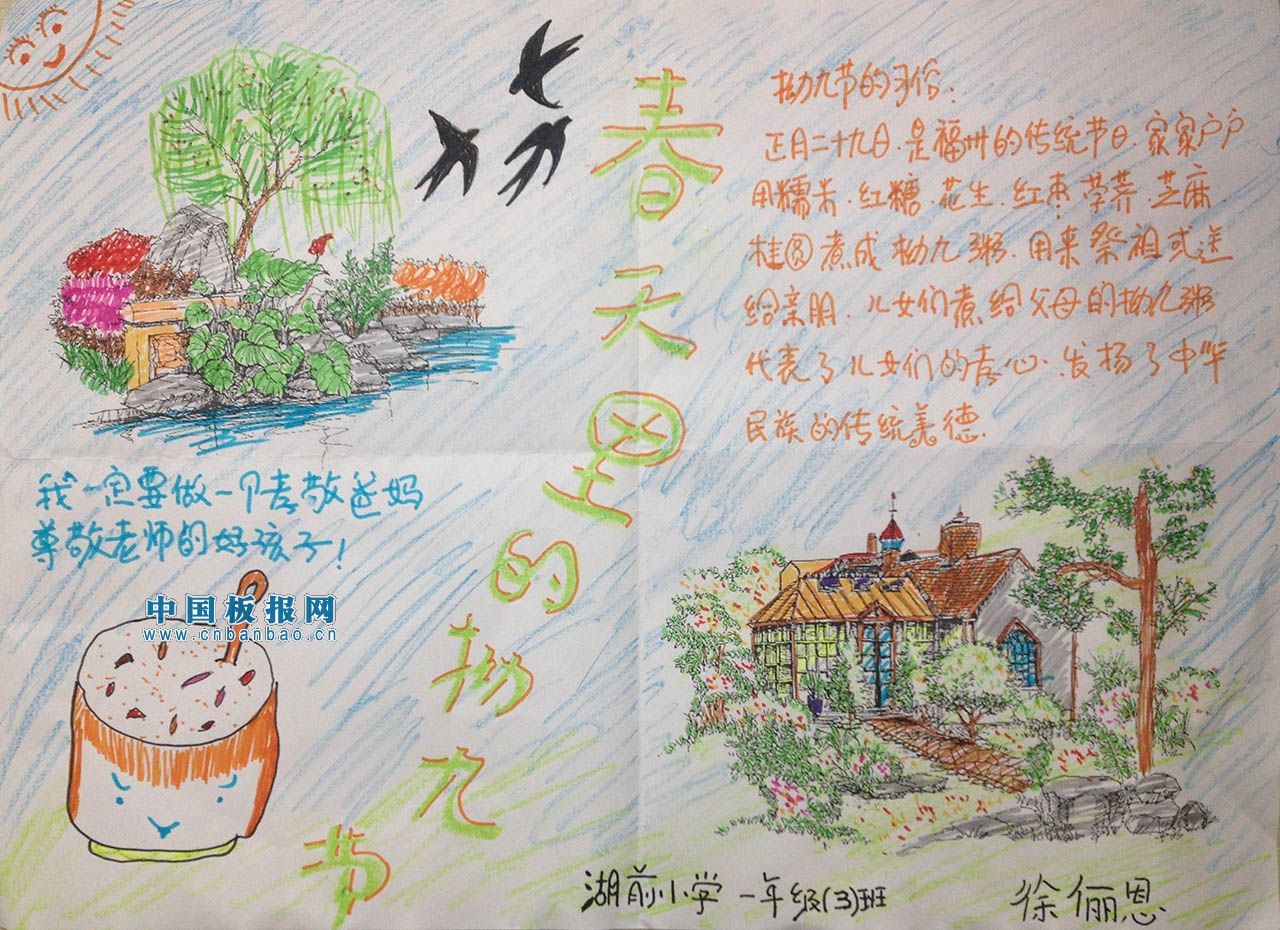 春天里的拗九节
拗九节的习俗:
正月二十九日.是福州的传统节日.家家户户
用糯米.红糖.花生.红枣.荸荠.芝麻
桂圆煮成拗九粥.用来祭祖或送
给亲朋.儿女们煮给父母的拗九粥
代表了儿女们的孝心.发扬了中华
民族的传统美德.
我一定要做一个孝敬爸妈
尊敬老师的好孩子!
中国板报网
www.cnbanbao.cn
湖前小学 一年级(3)班 徐俪恩